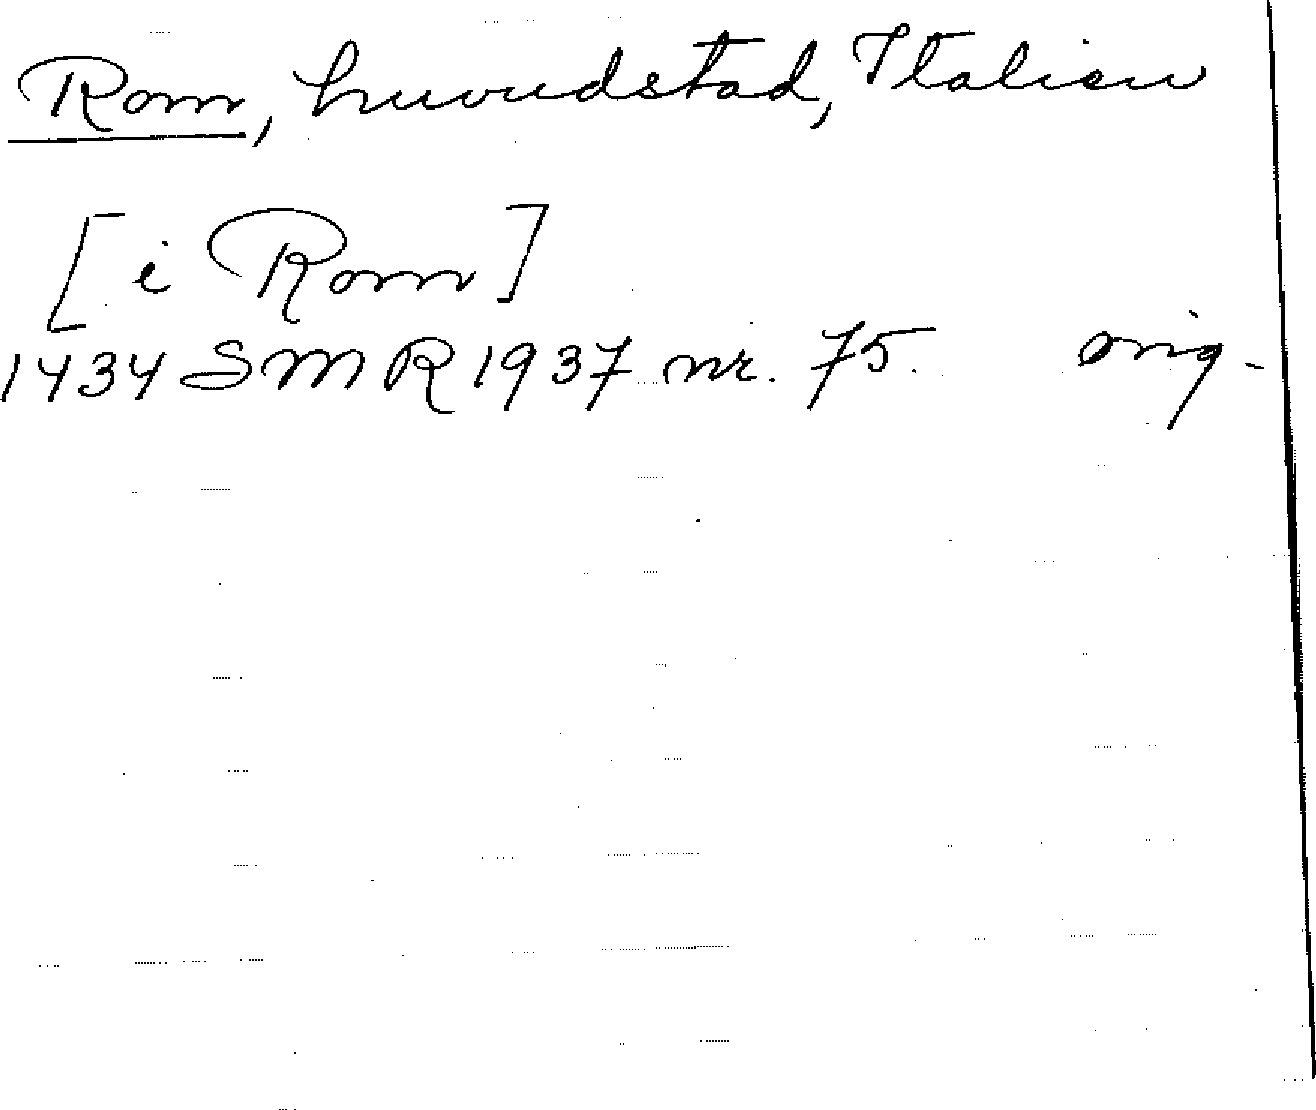 Rom, huvudstad, Italien
[i Rom]
1434 SMR 1937 nr. 75. orig.